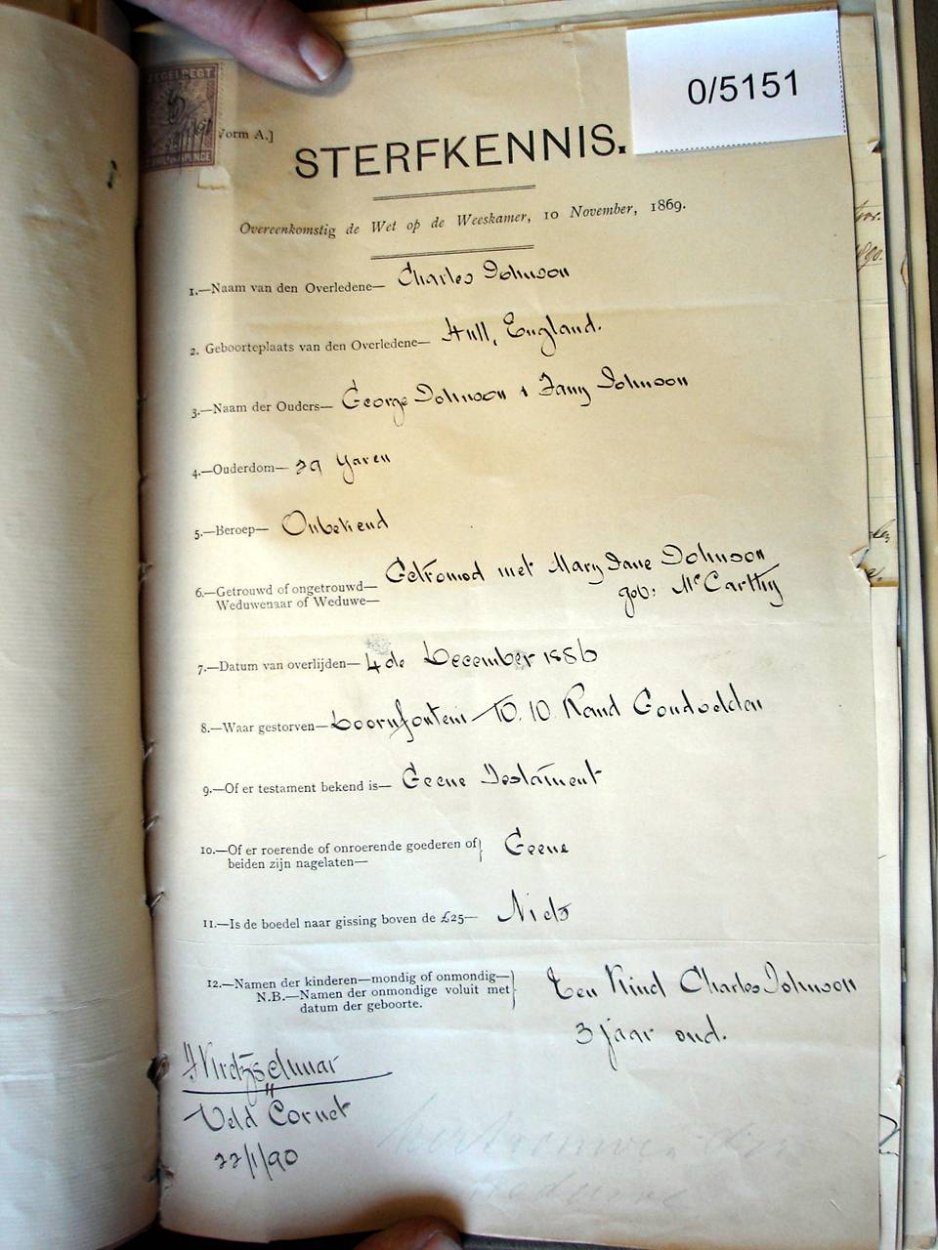 0/5151
ZEGELREGT
Form A.]
STERFKENNIS.
Overeenkomstig de Wet op de Weeskamer, 10 November, 1869.
1.—Naam van den Overledene— Charles Johnson
2. Geboorteplaats van den Overledene— Hull, England.
3.—Naam der Ouders— George Johnson & Fany Johnson
4.—Ouderdom— 29 Yaren
5.—Beroep— Onbekend
6.—Getrouwd of ongetrouwd— Getromod met Mary Jane Johnson
Weduwenaar of Weduwe— geb: McCarthy
7.—Datum van overlijden— 4de December 1886
8.—Waar gestorven— Doornfontein No. 10 Rand Goudvelden
9.—Of er testament bekend is— Geene Testament
10.—Of er roerende of onroerende goederen of} Geene
beiden zijn nagelaten—
11.—Is de boedel naar gissing boven de £25— Niets
12.—Namen der kinderen—mondig of onmondig—} Een Kind Charles Johnson
N.B.—Namen der onmondige voluit met
datum der geboorte. 3 jaar oud.
Veld Cornet
22/1/90